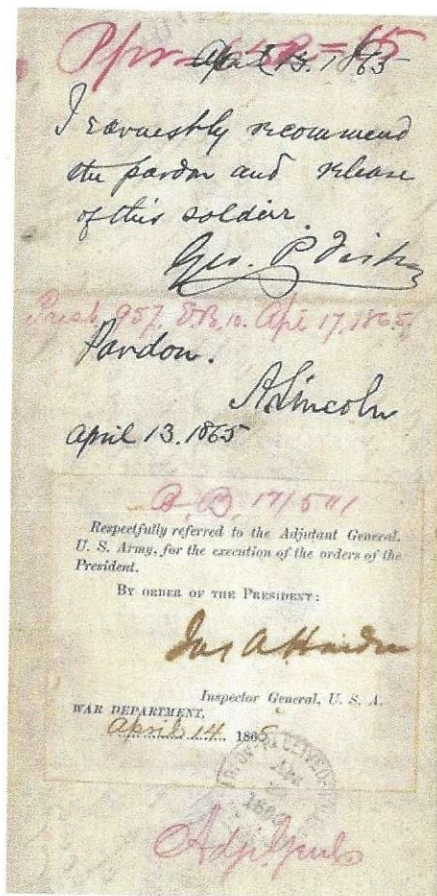 April 13. 1865
I earnestly recommend
the pardon and release
of this soldier.
Geo. P. Fisher
Presb. 957. D.B. 10. Apl 17. 1865.
Pardon.
A. Lincoln
April 13. 1865
B. B. 171541
Respectfully referred to the Adjutant General,
U. S. Army, for the execution of the orders of the
President.
BY ORDER OF THE PRESIDENT:
Jas A Hardie
Inspector General, U. S. A.
WAR DEPARTMENT,
April 14 1865
RECEIVED
Adjt Genls